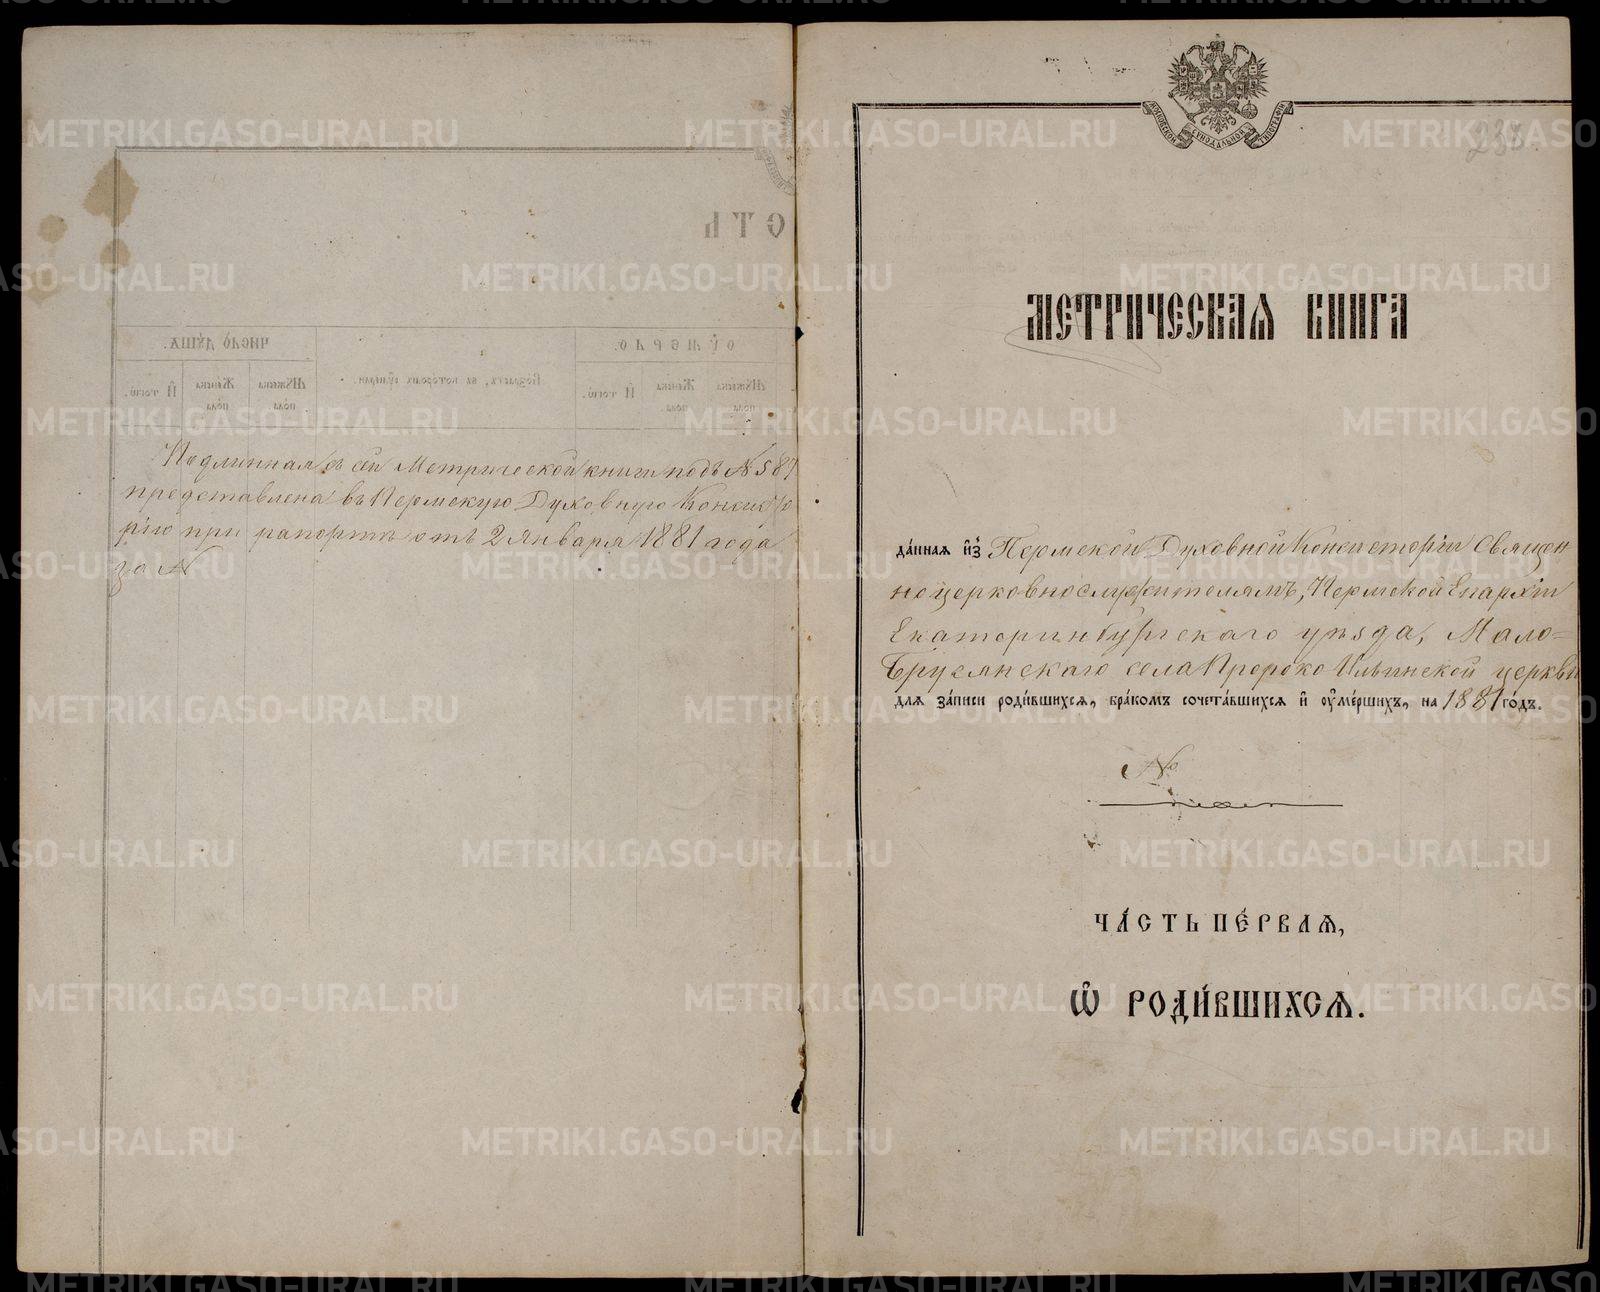 Подлинная съ сей Метрической книги подъ № 587
представлена въ Пермскую Духовную Консисто
рію при рапортѣ отъ 2 Января 1881 года
за №
233
МЕТРИЧЕСКАѦ КНИГА
да́ннаѧ и҆з̾ Пермской Духовной Консисторіи Священ
ноцерковнослужителямъ, Пермской Епархіи
Екатеринбургскаго уѣзда, Мало=
Брусянскаго села Пророко Ильинской церкви
длѧ за́писи роди́вшихсѧ, бра́комъ сочета́вшихсѧ и҆ ѹ҆ме́ршихъ, на 1881 го́дъ.
№
ЧА́СТЬ ПЕ́РВАѦ,
Ѡ҆ РОДИ́ВШИХСѦ.
METRIKI.GASO-URAL.RU